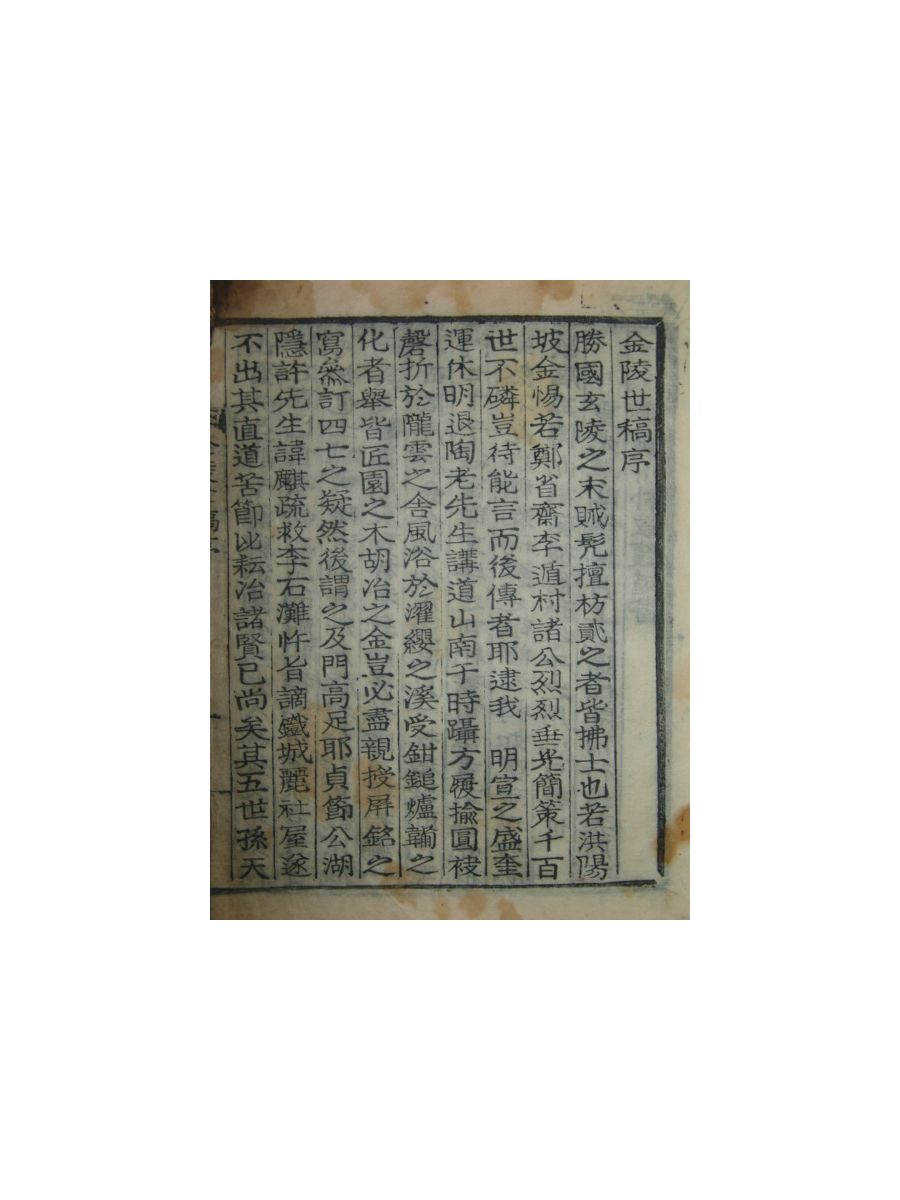 金陵世稿序
勝國玄陵之末賊髡擅枋貳之者皆拂士也若洪陽
坡金惕若鄭省齋李遁村諸公烈烈垂光簡策千百
世不磷豈待能言而後傳者耶逮我 明宣之盛奎
運休明退陶老先生講道山南于時躡方屨揄圓袯
磬折於隴雲之舍風浴於濯纓之溪受鉗鎚爐韛之
化者舉皆匠園之木胡冶之金豈必盡親授屏銘之
寫叅訂四七之疑然後謂之及門高足耶貞節公湖
隱許先生諱麒疏救李石灘忤旨謫鐵城麗社屋遂
不出其直道苦節比耘冶諸賢已尚矣其五世孫天